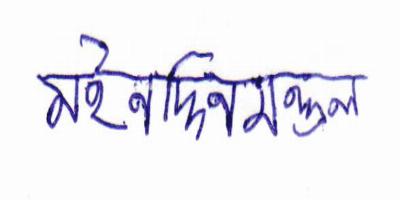 মইনদ্দিন মন্ডল